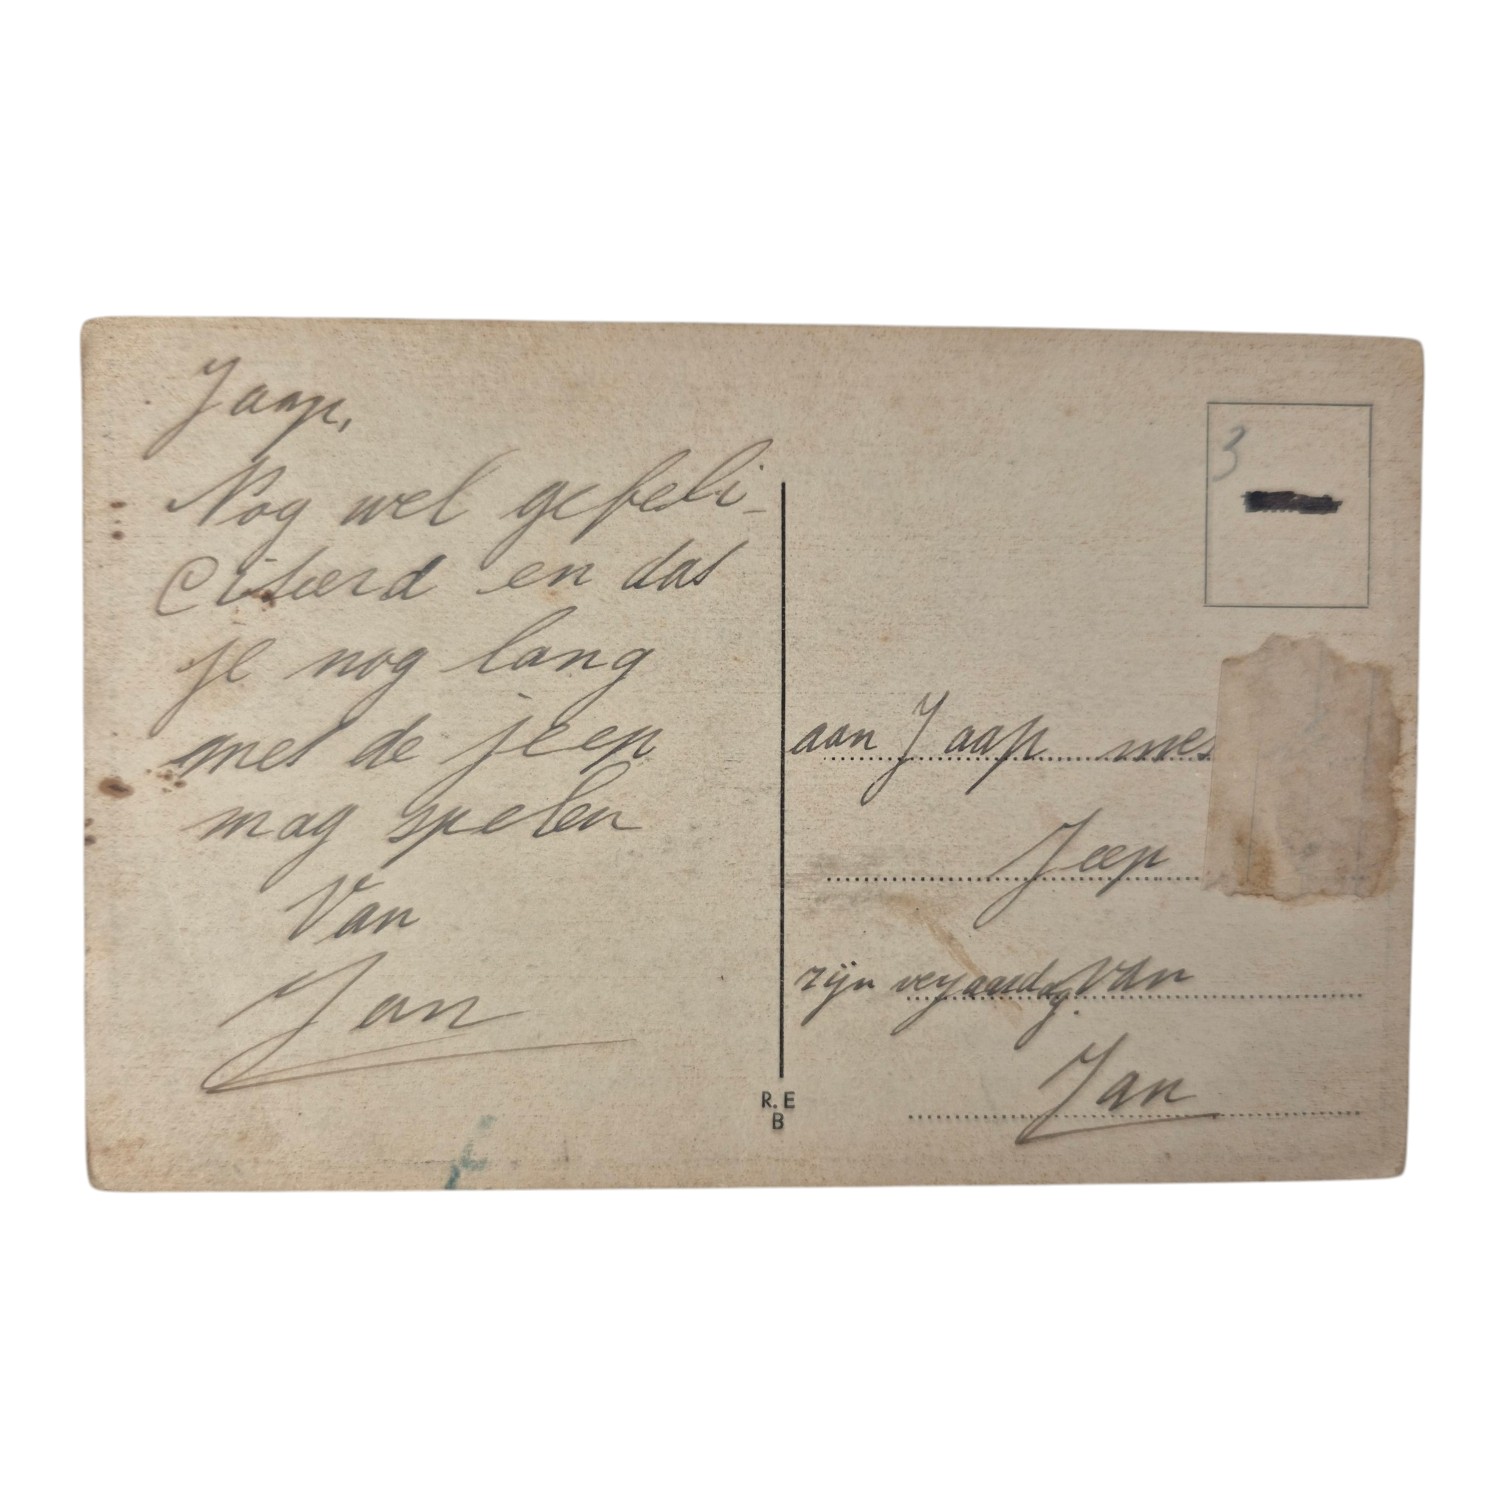 Jaap,
Nog wel gefeli-
citeerd en dat
je nog lang
met de jeep
mag spelen
Van
Jan
3
aan Jaap met
Jeep
zijn verjaardag. Van
Jan
R. E
B